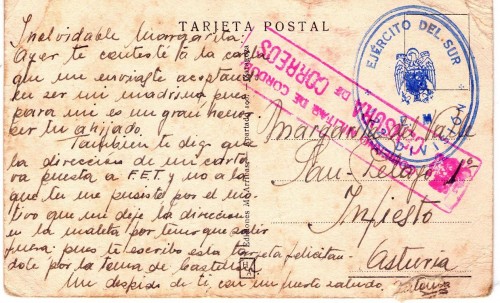 TARJETA POSTAL
Inolvidable Margarita:
Ayer te contesté a la carta
que me enviaste aceptando
en ser mi madrina, pues
para mi es un gran honor
ser tu ahijado.
Tambien te digo que
la direccion de mi carta
va puesta a F.E.T. y no a la
que tu me pusiste por el mo-
tivo que me deje la direccion
en la maleta por tener que salir
fuera: pues te escribo esta tarjeta felicitan-
dote por la toma de Castellon
Me despido de ti, con un fuerte saludo.
Margarita del Valle
San Pelayo 1º
Infiesto
Asturia
EJÉRCITO DEL SUR
E. M.
DIVISIÓN
MILITAR DE
DE CORREOS
Ediciones M. Arribas